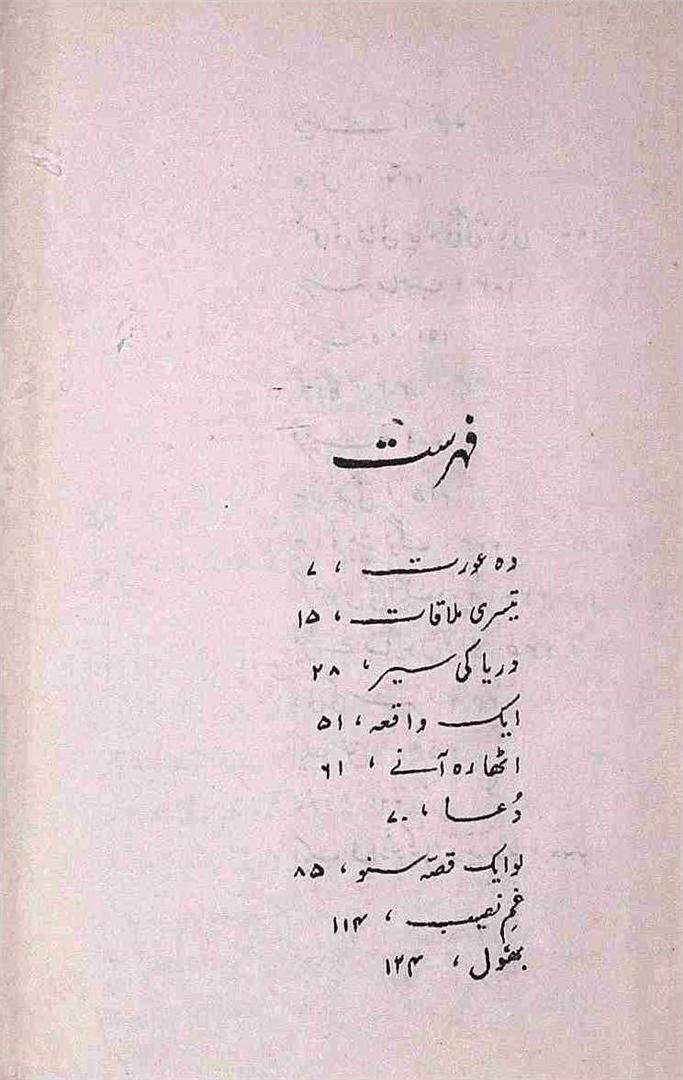 فہرست
وہ عورت ، ۷
تیسری ملاقات ، ۱۵
دریا کی سیر ، ۲۸
ایک واقعہ ، ۵۱
اٹھارہ آنے ، ۶۱
دُعا ، ۷۰
لو ایک قصّہ سنو ، ۸۵
غمِ نصیب ، ۱۱۴
بھَول ، ۱۲۴